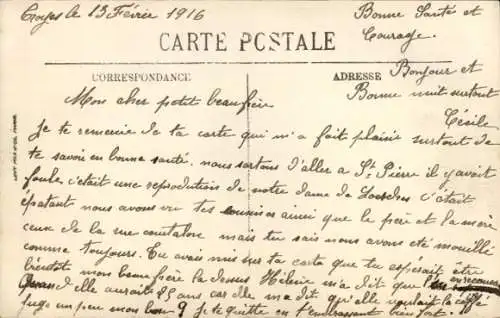 Troyes le 13 Février 1916
Bonne Santé et
Courage.
CARTE POSTALE
CORRESPONDANCE
ADRESSE
Bonjour et
Bonne nuit surtout
Cécile
Mon cher petit beaufrère
Je te remercie de ta carte qui m'a fait plaisir surtout de
te savoir en bonne santé. nous sortons d'aller a St Pierre il y avait
foule c'était une reproduction de notre dame de Lourdes c'était
épatant nous avons vu tes cousines ainsi que le père et la mère
ceux de la rue mais tu sais nous avons été mouillé
comme toujours. Tu avais mis sur ta carte que tu esperait être
bientot mon beau frère la dessus Hélène m'a dit que
quand elle aurait 25 ans car elle m'a dit qu'elle voulait
juge un peu mon bon je te quitte en t'embrassant bien fort.